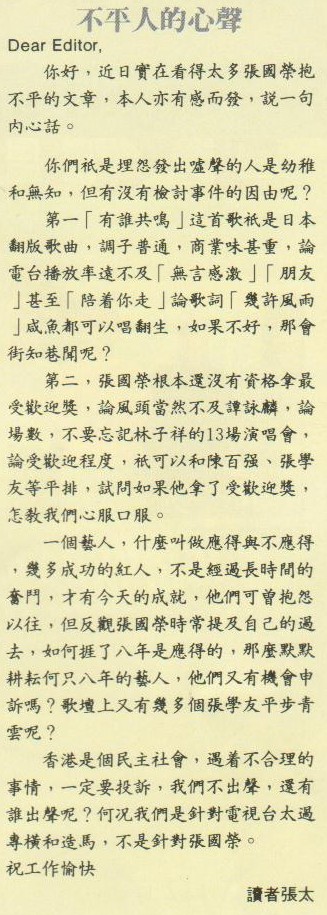 不平人的心聲
Dear Editor,
你好，近日實在看得太多張國榮抱
不平的文章，本人亦有感而發，説一句
内心話。
你們祇是埋怨發出噓聲的人是幼稚
和無知，但有没有檢討事件的因由呢？
第一「有誰共鳴」這首歌祇是日本
翻版歌曲，調子普通，商業味甚重，論
電台播放率遠不及「無言感激」「朋友
」甚至「陪着你走」論歌詞「幾許風雨
」咸魚都可以唱翻生，如果不好，那會
街知巷聞呢？
第二，張國榮根本還没有資格拿最
受歡迎獎，論風頭當然不及譚詠麟，論
場數，不要忘記林子祥的13場演唱會，
論受歡迎程度，祇可以和陳百强、張學
友等平排，試問如果他拿了受歡迎獎，
怎教我們心服口服。
一個藝人，什麼叫做應得與不應得
，幾多成功的紅人，不是經過長時間的
奮鬥，才有今天的成就，他們可曾抱怨
以往，但反觀張國榮時常提及自己的過
去，如何捱了八年是應得的，那麼默默
耕耘何只八年的藝人，他們又有機會申
訴嗎？歌壇上又有幾多個張學友平步青
雲呢？
香港是個民主社會，遇着不合理的
事情，一定要投訴，我們不出聲，還有
誰出聲呢？何况我們是針對電視台太過
專横和造馬，不是針對張國榮。
祝工作愉快
讀者張太